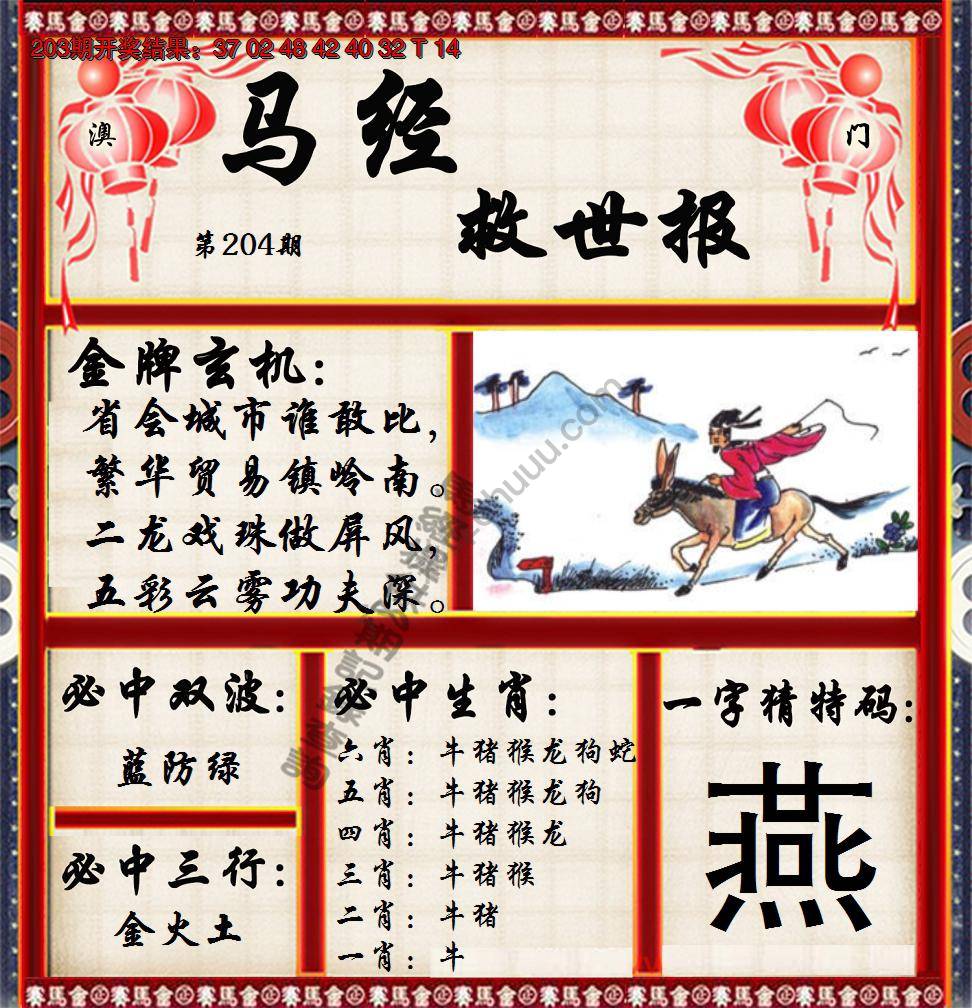 203期开奖结果：37 02 48 42 40 32 T 14
澳 门
马经
救世报
第204期
金牌玄机：
省会城市谁敢比，
繁华贸易镇岭南。
二龙戏珠做屏风，
五彩云雾功夫深。
必中双波：
蓝防绿
必中三行：
金火土
必中生肖：
六肖：牛猪猴龙狗蛇
五肖：牛猪猴龙狗
四肖：牛猪猴龙
三肖：牛猪猴
二肖：牛猪
一肖：牛
一字猜特码：
燕